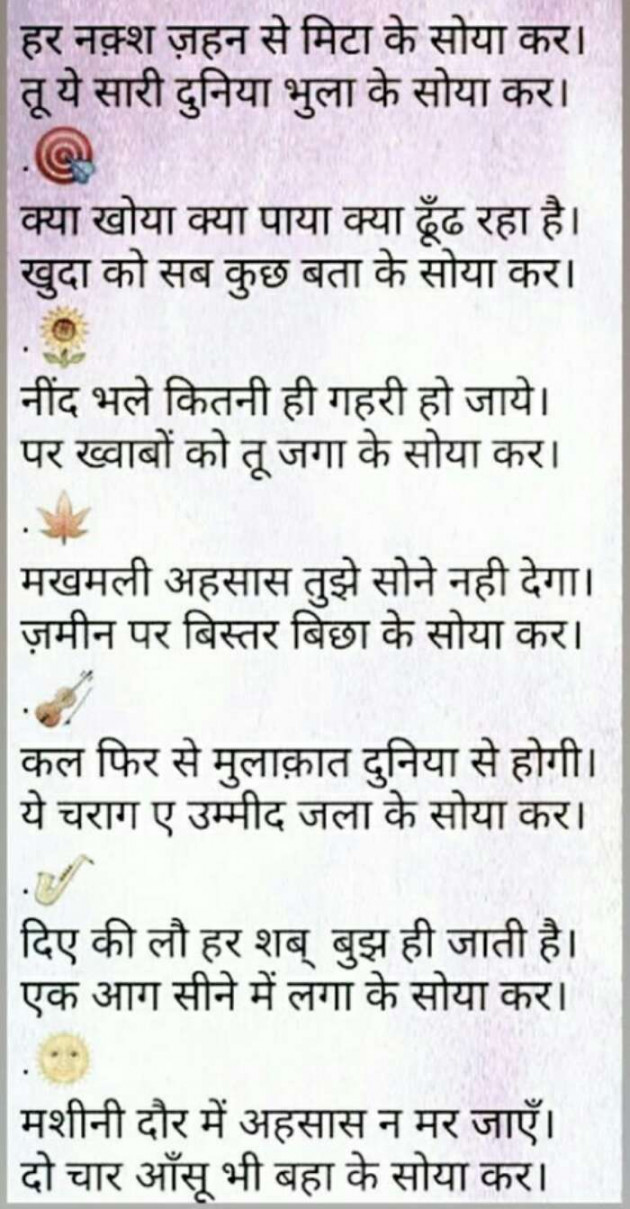 हर नक़्श ज़हन से मिटा के सोया कर।
तू ये सारी दुनिया भुला के सोया कर।
.
क्या खोया क्या पाया क्या ढूँढ रहा है।
खुदा को सब कुछ बता के सोया कर।
.
नींद भले कितनी ही गहरी हो जाये।
पर ख्वाबों को तू जगा के सोया कर।
.
मखमली अहसास तुझे सोने नही देगा।
ज़मीन पर बिस्तर बिछा के सोया कर।
.
कल फिर से मुलाक़ात दुनिया से होगी।
ये चराग ए उम्मीद जला के सोया कर।
.
दिए की लौ हर शब् बुझ ही जाती है।
एक आग सीने में लगा के सोया कर।
.
मशीनी दौर में अहसास न मर जाएँ।
दो चार आँसू भी बहा के सोया कर।